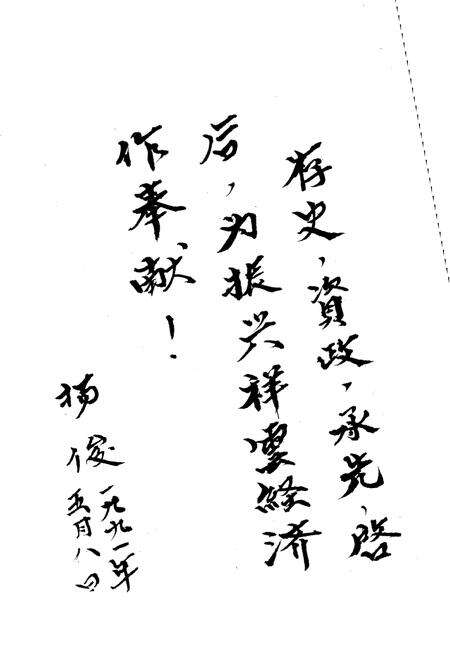 存史，資政，承先，启
后，为振兴祥雲经济
作奉献！
杨俊
一九九一年
五月八日